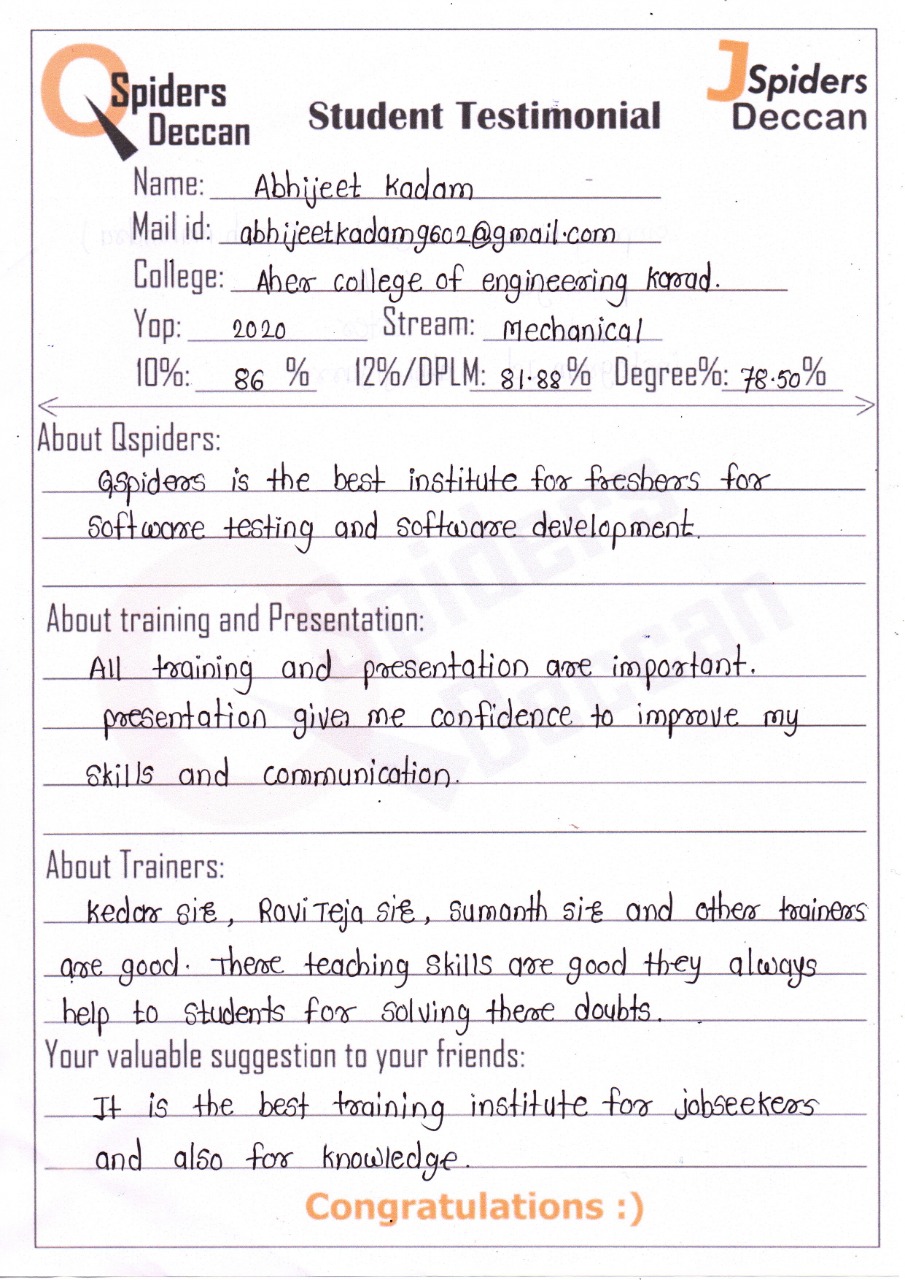 QSpiders
Deccan
Student Testimonial
JSpiders
Deccan
Name: Abhijeet Kadam
Mail id: abhijeetkadam9602@gmail.com
College: Aher college of engineering Karad.
Yop: 2020 Stream: Mechanical
10%: 86 % 12%/DPLM: 81.88% Degree%: 78.50%
About Qspiders:
QSpiders is the best institute for freshers for
software testing and software development.
About training and Presentation:
All training and presentation are important.
presentation gives me confidence to improve my
skills and communication.
About Trainers:
Kedar sir, RaviTeja sir, Sumanth sir and other trainers
are good. There teaching skills are good they always
help to students for solving there doubts.
Your valuable suggestion to your friends:
It is the best training institute for jobseekers
and also for knowledge.
Congratulations :)